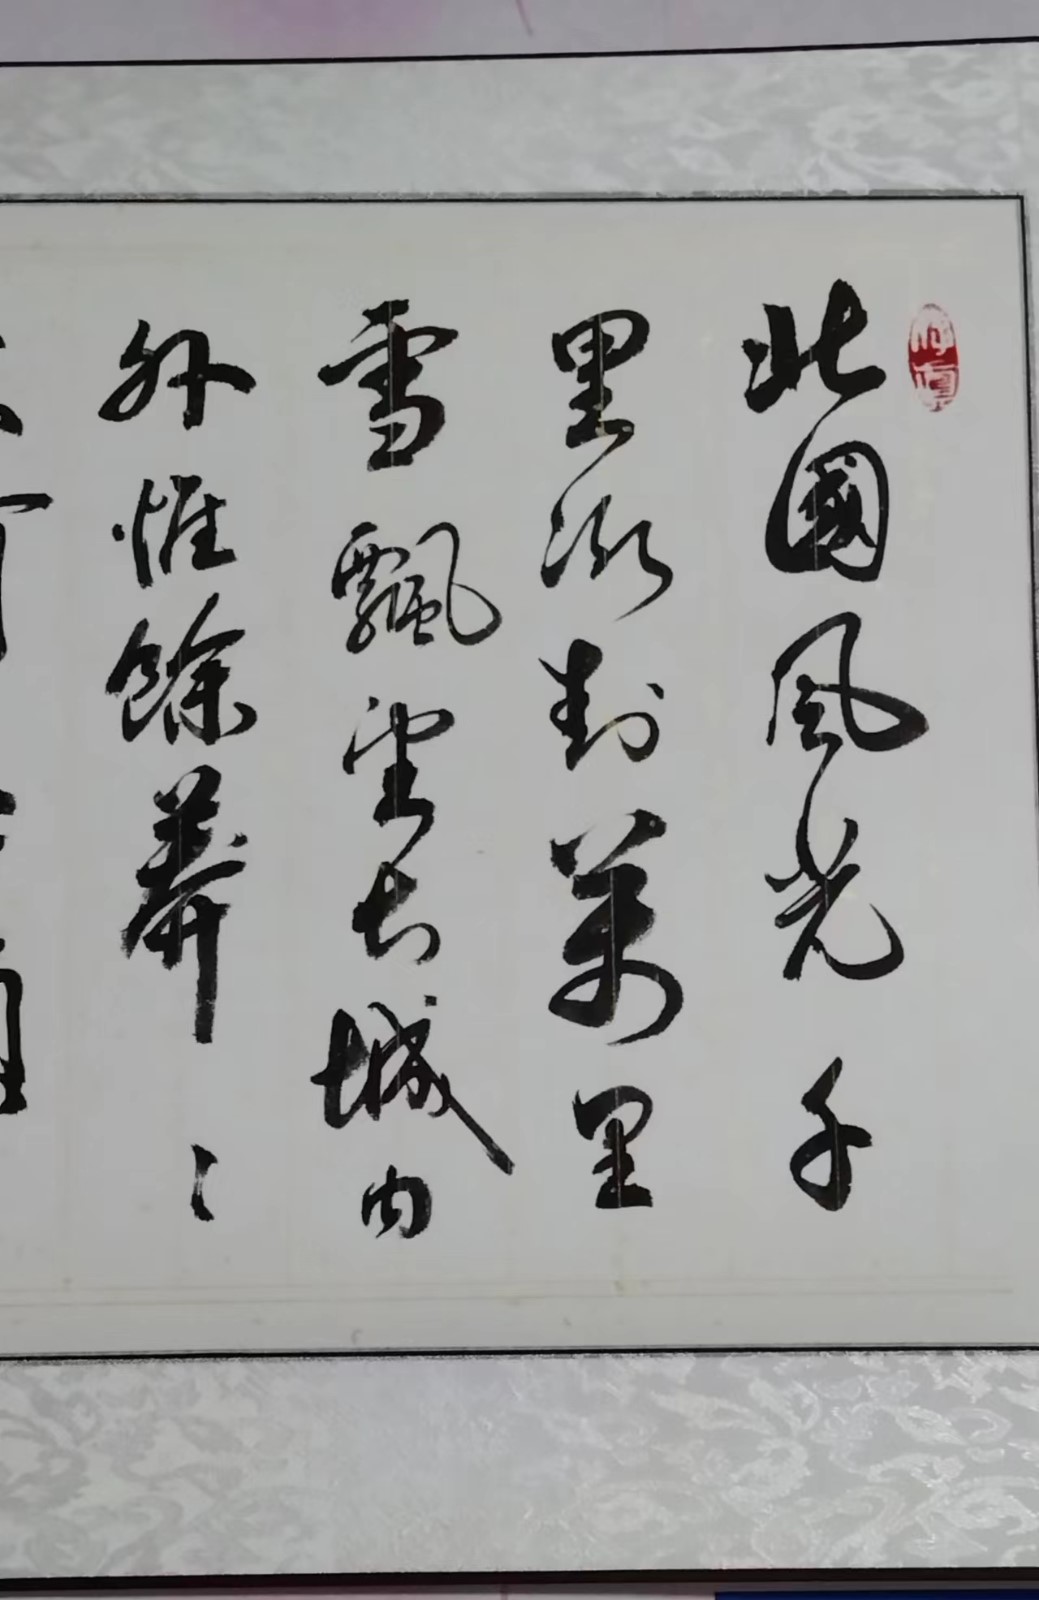 北國風光千
里冰封萬里
雪飄望長城內
外惟餘莽〻